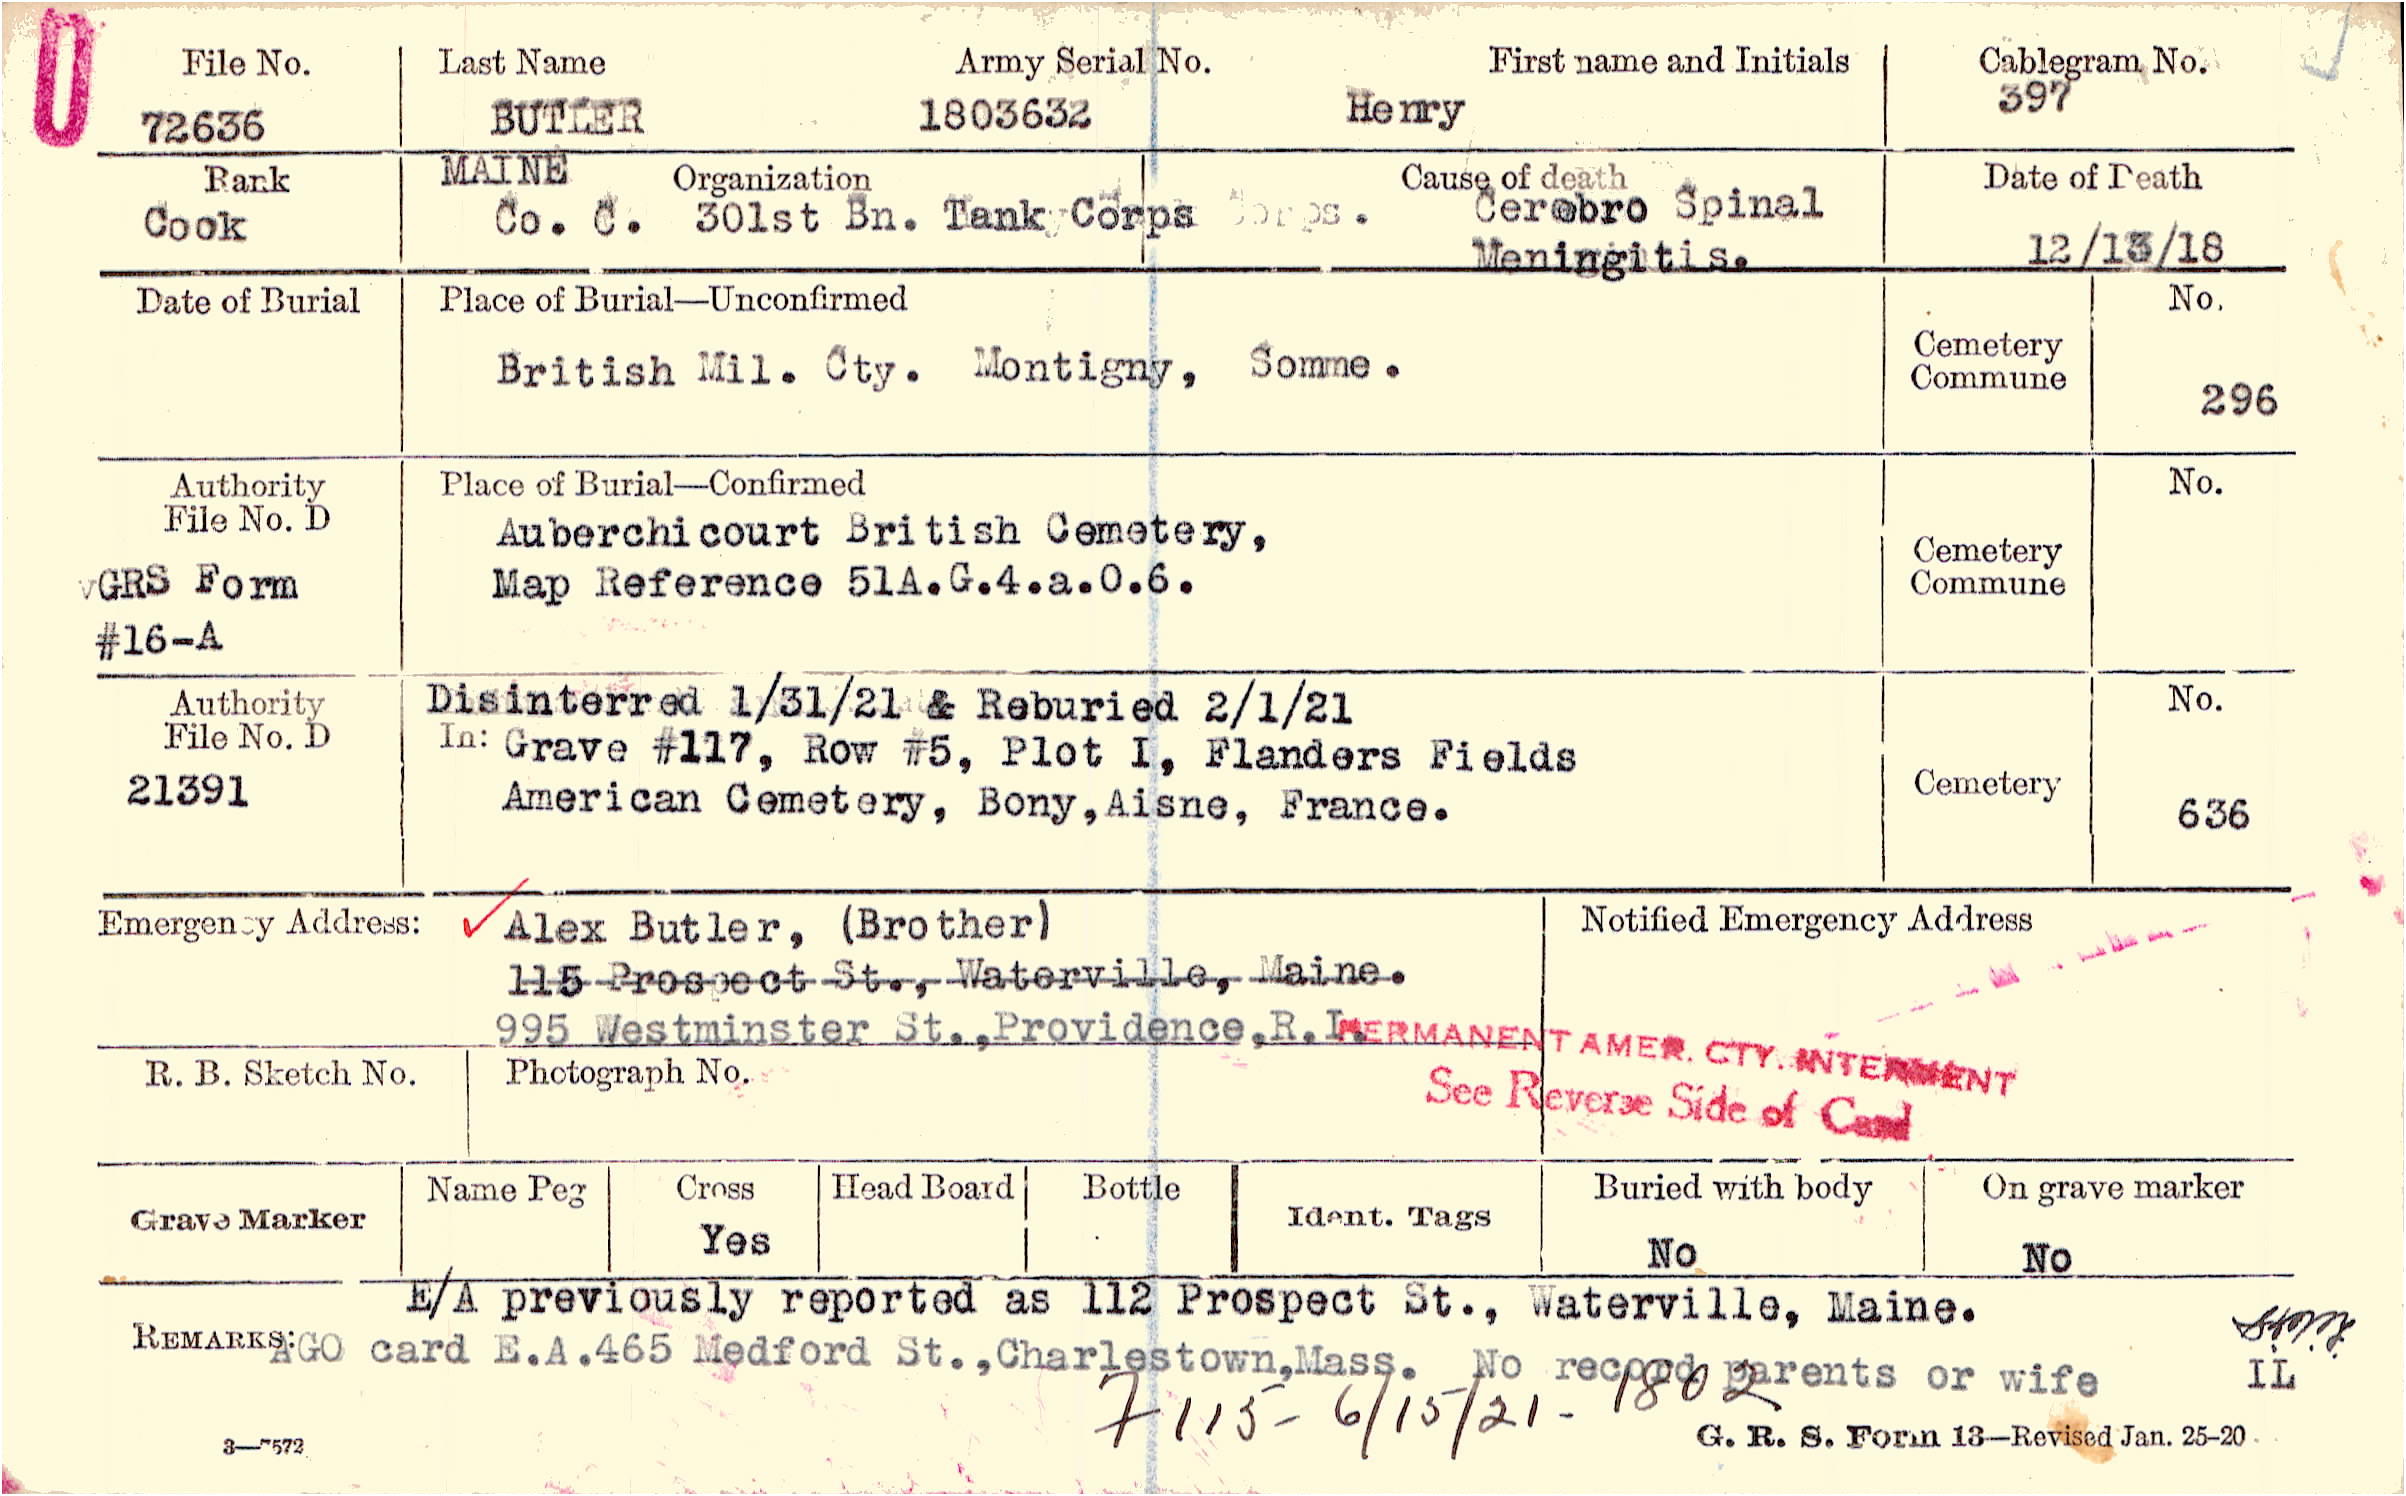 File No. Last Name Army Serial No. First name and Initials Cablegram No.
72636 BUTLER 1803632 Henry 397
Rank MAINE Organization Cause of death Date of Death
Cook Co. C. 301st Bn. Tank Corps Corps. Cerebro Spinal
Meningitis. 12/13/18
Date of Burial Place of Burial—Unconfirmed No.
British Mil. Cty. Montigny, Somme. Cemetery
Commune
296
Authority Place of Burial—Confirmed No.
File No. D Auberchicourt British Cemetery,
vGRS Form Map Reference 51A.G.4.a.0.6. Cemetery
Commune
#16-A
Authority Disinterred 1/31/21 & Reburied 2/1/21 No.
File No. D In: Grave #117, Row #5, Plot I, Flanders Fields
21391 American Cemetery, Bony,Aisne, France. Cemetery 636
Emergency Address: Alex Butler, (Brother) Notified Emergency Address
115 Prospect St., Waterville, Maine.
995 Westminster St.,Providence,R.I.
PERMANENT AMER. CTY. INTERMENT
R. B. Sketch No. Photograph No. See Reverse Side of Card
Grave Marker Name Peg Cross Head Board Bottle Ident. Tags Buried with body On grave marker
Yes No No
E/A previously reported as 112 Prospect St., Waterville, Maine.
REMARKS: AGO card E.A.465 Medford St.,Charlestown,Mass. No record parents or wife IL
7115- 6/15/21 - 1802
3—7572 G. R. S. Form 13—Revised Jan. 25-20